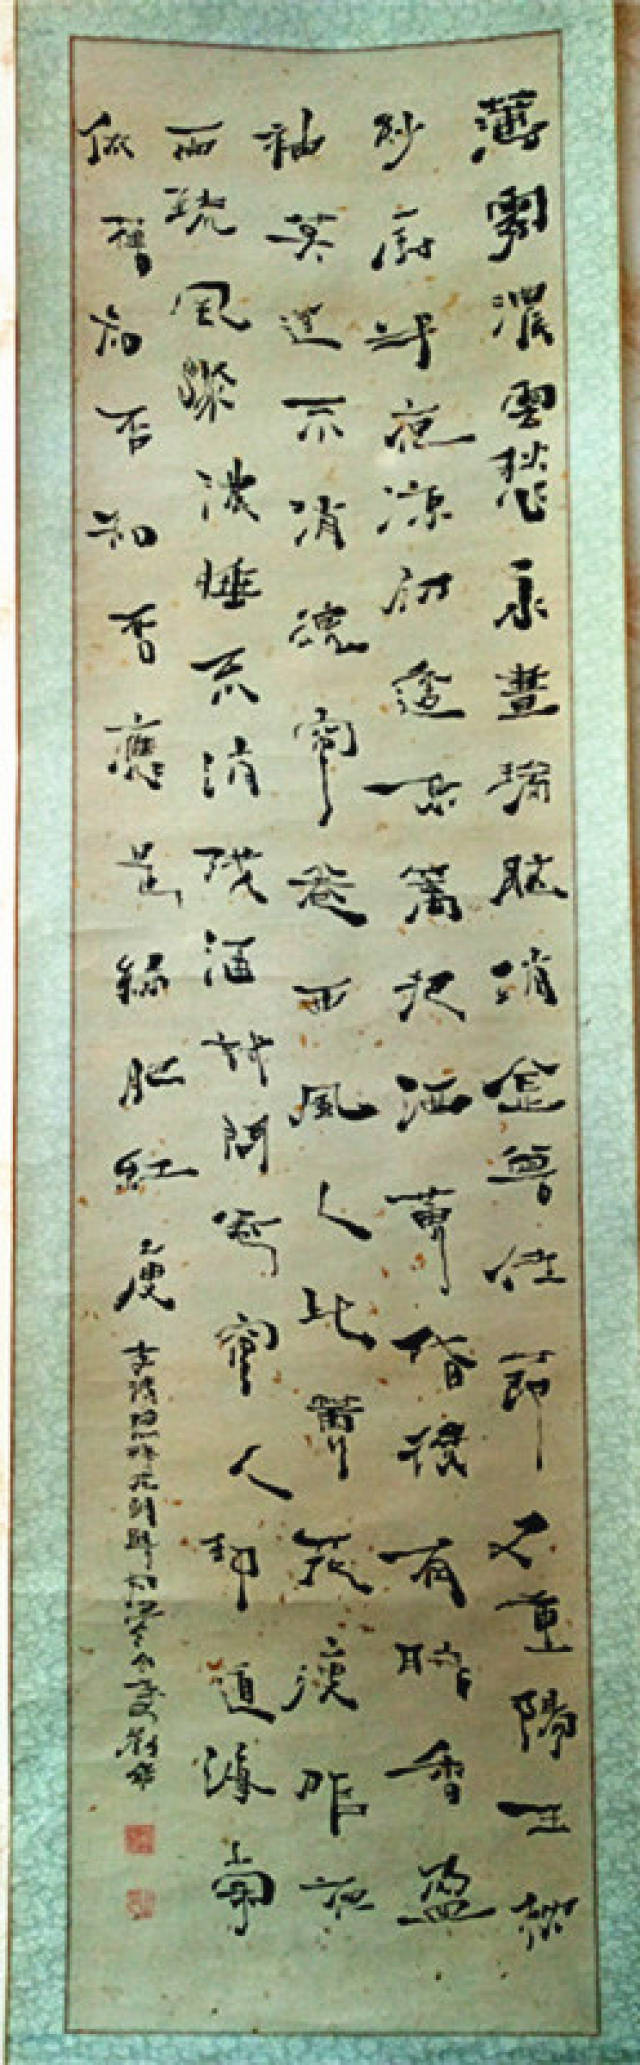 薄霧濃雲愁永晝瑞腦消金兽佳節又重陽玉枕
紗厨半夜凉初透東篱把酒黄昏後有暗香盈
袖莫道不消魂簾卷西風人比黄花瘦昨夜
雨疏風驟濃睡不消殘酒試問卷簾人却道海棠
依舊知否知否應是綠肥紅瘦
李清照醉花阴